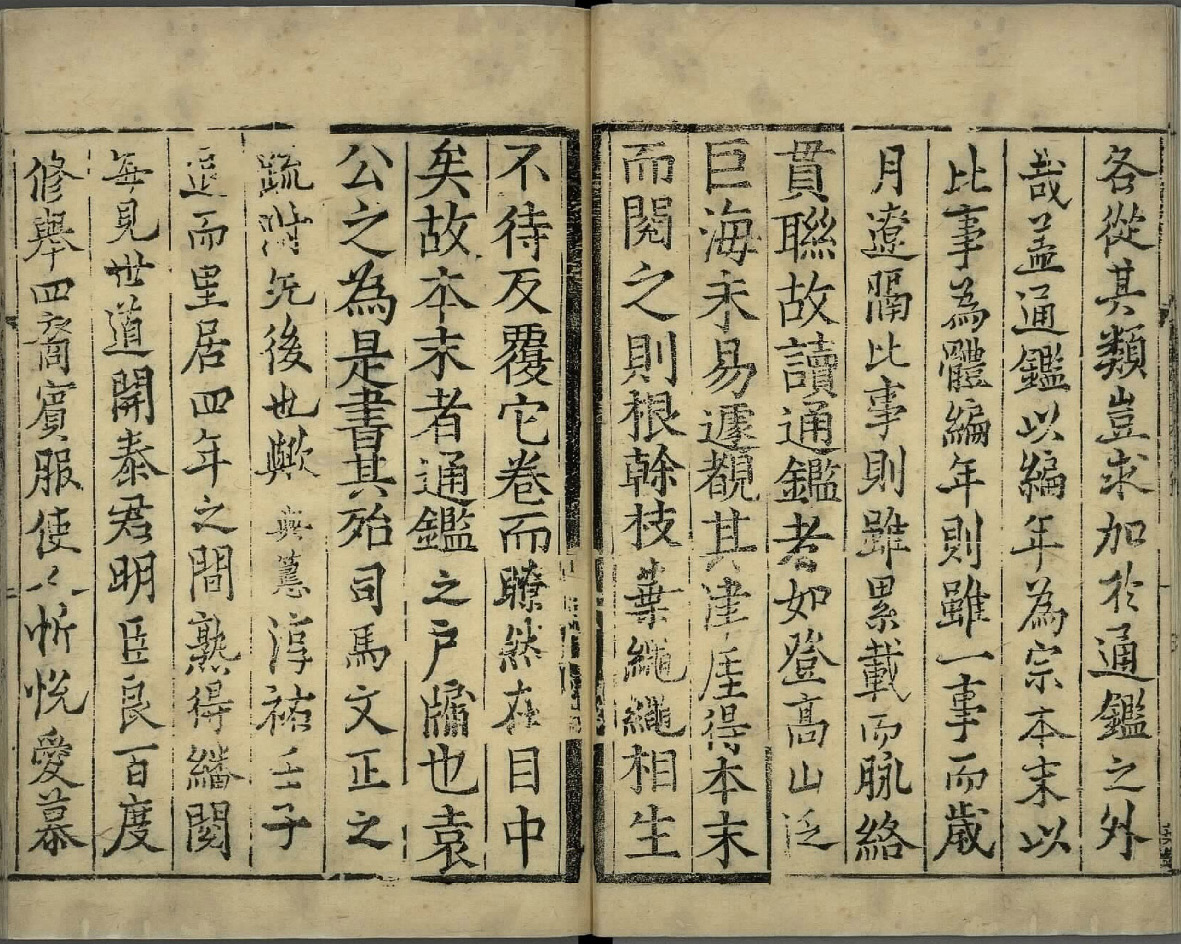 各從其類豈求加於通鑑之外
哉盖通鑑以編年為宗本末以
比事為體編年則雖一事而歲
月遼隔比事則雖累載而脉絡
貫聯故讀通鑑者如登高山泛
巨海未易遽覩其津厓得本末
而閱之則根幹枝葉繩繩相生
不待反覆它卷而瞭然在目中
矣故本末者通鑑之户牖也袁
公之為是書其殆司馬文正之
疏附先後也歟與𥲅淳祐壬子
退而里居四年之間熟得繙閱
每見世道開泰君明臣良百度
修舉四裔賓服使人忻悅愛慕